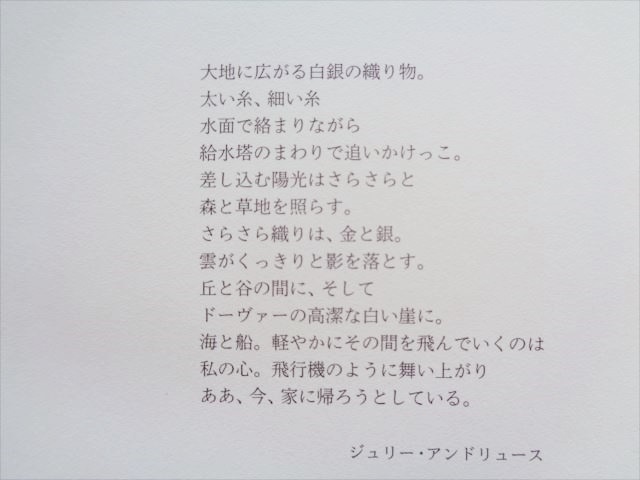 大地に広がる白銀の織り物。
太い糸、細い糸
水面で絡まりながら
給水塔のまわりで追いかけっこ。
差し込む陽光はさらさらと
森と草地を照らす。
さらさら織りは、金と銀。
雲がくっきりと影を落とす。
丘と谷の間に、そして
ドーヴァーの高潔な白い崖に。
海と船。軽やかにその間を飛んでいくのは
私の心。飛行機のように舞い上がり
ああ、今、家に帰ろうとしている。
ジュリー・アンドリュース